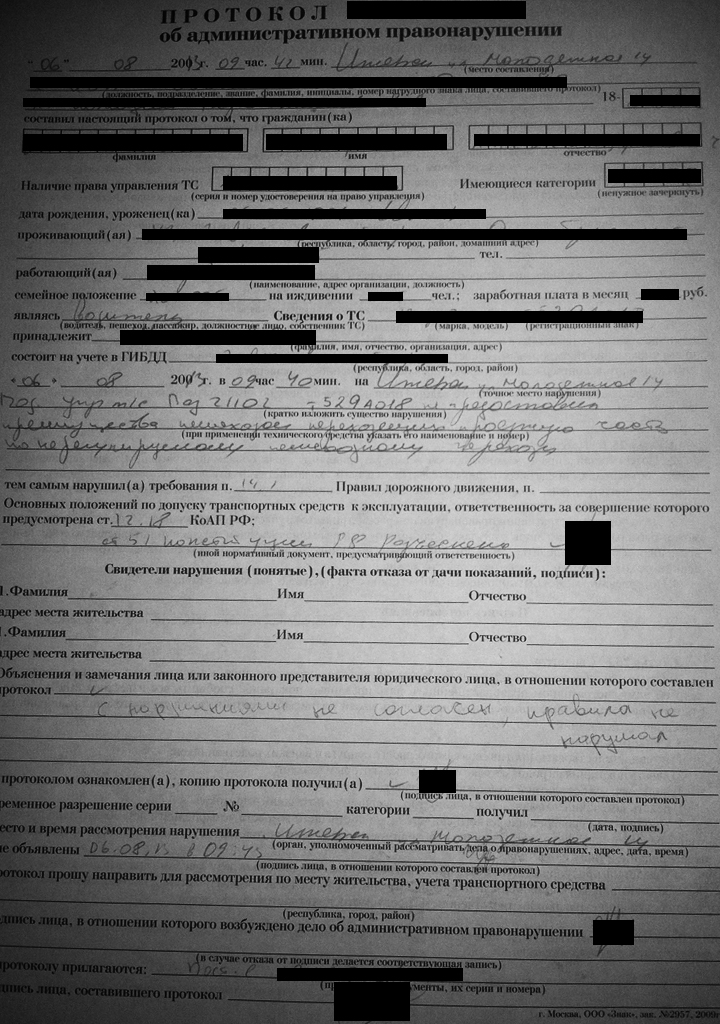 ПРОТОКОЛ
об административном правонарушении
"06" 08 2003г. 09 час. 42 мин. Ижевск ул Молодежная 14
(место составления)
(должность, подразделение, звание, фамилия, инициалы, номер нагрудного знака лица, составившего протокол)
18-
составил настоящий протокол о том, что гражданин(ка)
фамилия имя отчество
Наличие права управления ТС Имеющиеся категории
(серия и номер удостоверения на право управления) (ненужное зачеркнуть)
дата рождения, уроженец(ка)
проживающий(ая)
(республика, область, город, район, домашний адрес)
тел.
работающий(ая)
(наименование, адрес организации, должность)
семейное положение на иждивении чел.; заработная плата в месяц руб.
являясь водитель Сведения о ТС
(водитель, пешеход, пассажир, должностное лицо, собственник ТС) (марка, модель) (регистрационный знак)
принадлежит
(фамилия, имя, отчество, организация, адрес)
состоит на учете в ГИБДД
(республика, область, город, район)
"06" 08 200 г. в 09 час 40 мин. на Ижевск ул Молодежная 14
(точное место нарушения)
упр т/с Ваз 21102 529А018 не предоставил
(кратко изложить существо нарушения)
преимущества пешеходам переходящим проезжую часть
(при применении технического средства указать его наименование и номер)
по нерегулируемому пешеходному переходу
тем самым нарушил(а) требования п. 14.1 Правил дорожного движения, п.
Основных положений по допуску транспортных средств к эксплуатации, ответственность за совершение которого
предусмотрена ст. 12.18 КоАП РФ;
ст 51 конституции РФ Разъяснена
(иной нормативный документ, предусматривающий ответственность)
Свидетели нарушения (понятые), (факта отказа от дачи показаний, подписи):
1.Фамилия Имя Отчество
адрес места жительства
1.Фамилия Имя Отчество
адрес места жительства
Объяснения и замечания лица или законного представителя юридического лица, в отношении которого составлен
протокол
С нарушениями не согласен, правила не
нарушал
протоколом ознакомлен(а), копию протокола получил(а)
(подпись лица, в отношении которого составлен протокол)
ременное разрешение серии № категории получил
(дата, подпись)
есто и время рассмотрения нарушения Ижевск Молодежная 14
(орган, уполномоченный рассматривать дела о правонарушениях, адрес, дата, время)
не объявлены 06.08.13 в 09:43
(подпись лица, в отношении которого составлен протокол)
ротокол прошу направить для рассмотрения по месту жительства, учета транспортного средства
(республика, город, район)
дпись лица, в отношении которого возбуждено дело об административном правонарушении
(в случае отказа от подписи делается соответствующая запись)
протоколу прилагаются:
документы, их серии и номера)
дпись лица, составившего протокол
г. Москва, ООО «Знак», зак. №2957, 2009г